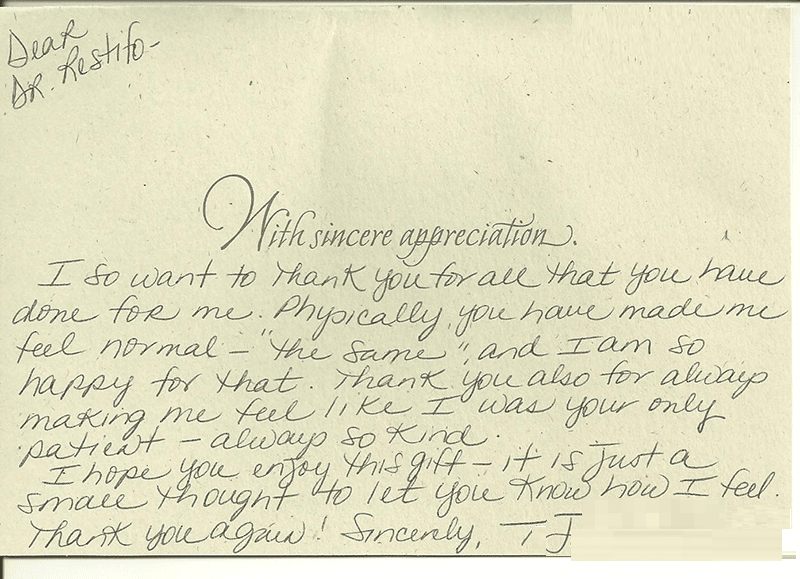 Dear
DR. Restifo-
With sincere appreciation.
I so want to thank you for all that you have
done for me. Physically you have made me
feel normal - "the same", and I am so
happy for that. Thank you also for always
making me feel like I was your only
patient - always so kind.
I hope you enjoy this gift - it is just a
small thought to let you know how I feel.
Thank you again! Sincerely, T J